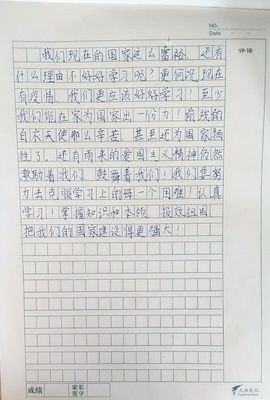 NO.
Date
评语
我们现在的国家这么富裕，还有
什么理由不好好学习呢？更何况，现在
有疫情，我们更应该好好学习！至少
我们能在家为国家出一份力！前线的
白衣天使那么辛苦，甚至还为国家牺
牲了。还有雨来的爱国主义精神仍然
激励着我们，鼓舞着我们！我们要努
力去克服学习上的每一个困难！认真
学习！掌握知识和本领，报效祖国，
把我们的国家建设得更强大！
成绩
家长
签字